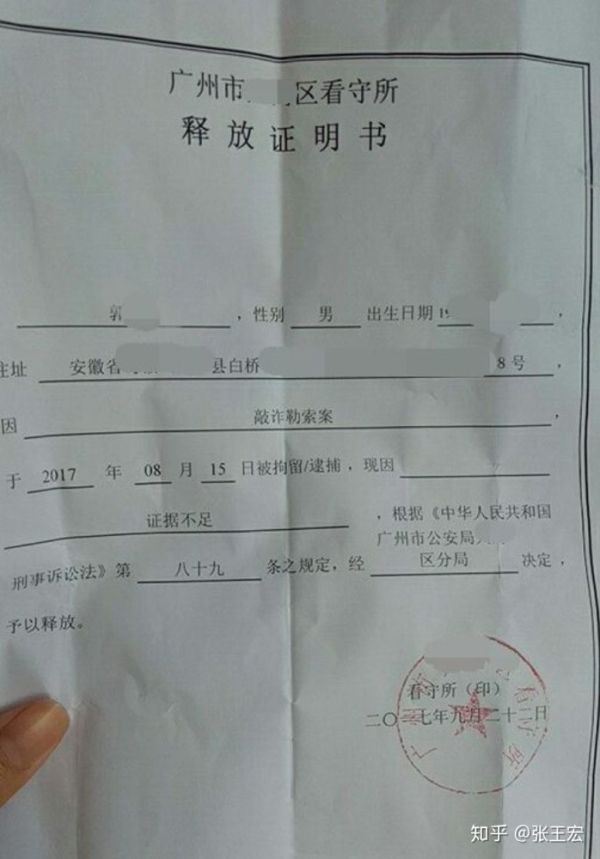 广州市 区看守所
释放证明书
郭 ，性别 男 出生日期19 ，
住址 安徽省 县白桥 8号 ，
因 敲诈勒索案 ，
于 2017 年 08 月 15 日被拘留/逮捕，现因
证据不足 ，根据《中华人民共和国
广州市公安局
刑事诉讼法》第 八十九 条之规定，经 区分局 决定，
予以释放。
看守所（印）
二〇一七年九月二十二日
知乎 @张王宏